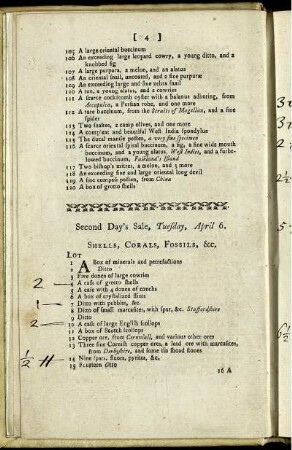 [ 4 ]
105 A large oriental buccinum
106 An exceeding large leopard cowry, a young ditto, and a
knobbed fig
107 A large purpura, a melon, and an alatus
108 An oriental snail, uncoated, and a fine purpuræ
109 An exceeding large and fine zebra snail
110 A sea, a young alatus, and 2 cowries
111 A scarce cockscomb oyster with a balanus adhering, from
Accapulco, a Persian robe, and one more
112 A rare buccinum, from the Straits of Magellan, and a fine
spider
113 Two snakes, 2 camp olives, and one more
114 A compleat and beautiful West India spondylus
115 The ducal mantle pecten, a very fine specimen
116 A scarce oriental spiral buccinum, a fig, a fine wide mouth
buccinum, and a young alatus, West Indies, and a furbe-
lowed buccinum, Falkland's Island
117 Two bishop's mitres, a melon, and 3 more
118 An exceeding fine and large oriental long devil
119 A fine compass pecten, from China
120 A box of grotto shells
Second Day's Sale, Tuesday, April 6.
SHELLS, CORALS, FOSSILS, &c.
LOT
1 A Box of minerals and petrefactions
2 Ditto
3 Five dozen of large cowries
4 A cask of grotto shells
5 A case with 4 dozen of conchs
6 A box of crystalized slots
1 7 Ditto with pebbles, &c.
8 Ditto of small marcasites, with spar, &c. Staffordshire
9 Ditto
2 10 A cask of large English scollops
11 A box of Scotch scollops
12 Copper ore, from Cornwall, and various other ores
13 Three fine Cornish copper ores, a lead ore with marcasites,
from Derbyshire, and some thunder stones
1/2 14 Nine spars, fluors, pyrites, &c.
15 Fourteen ditto
16 A